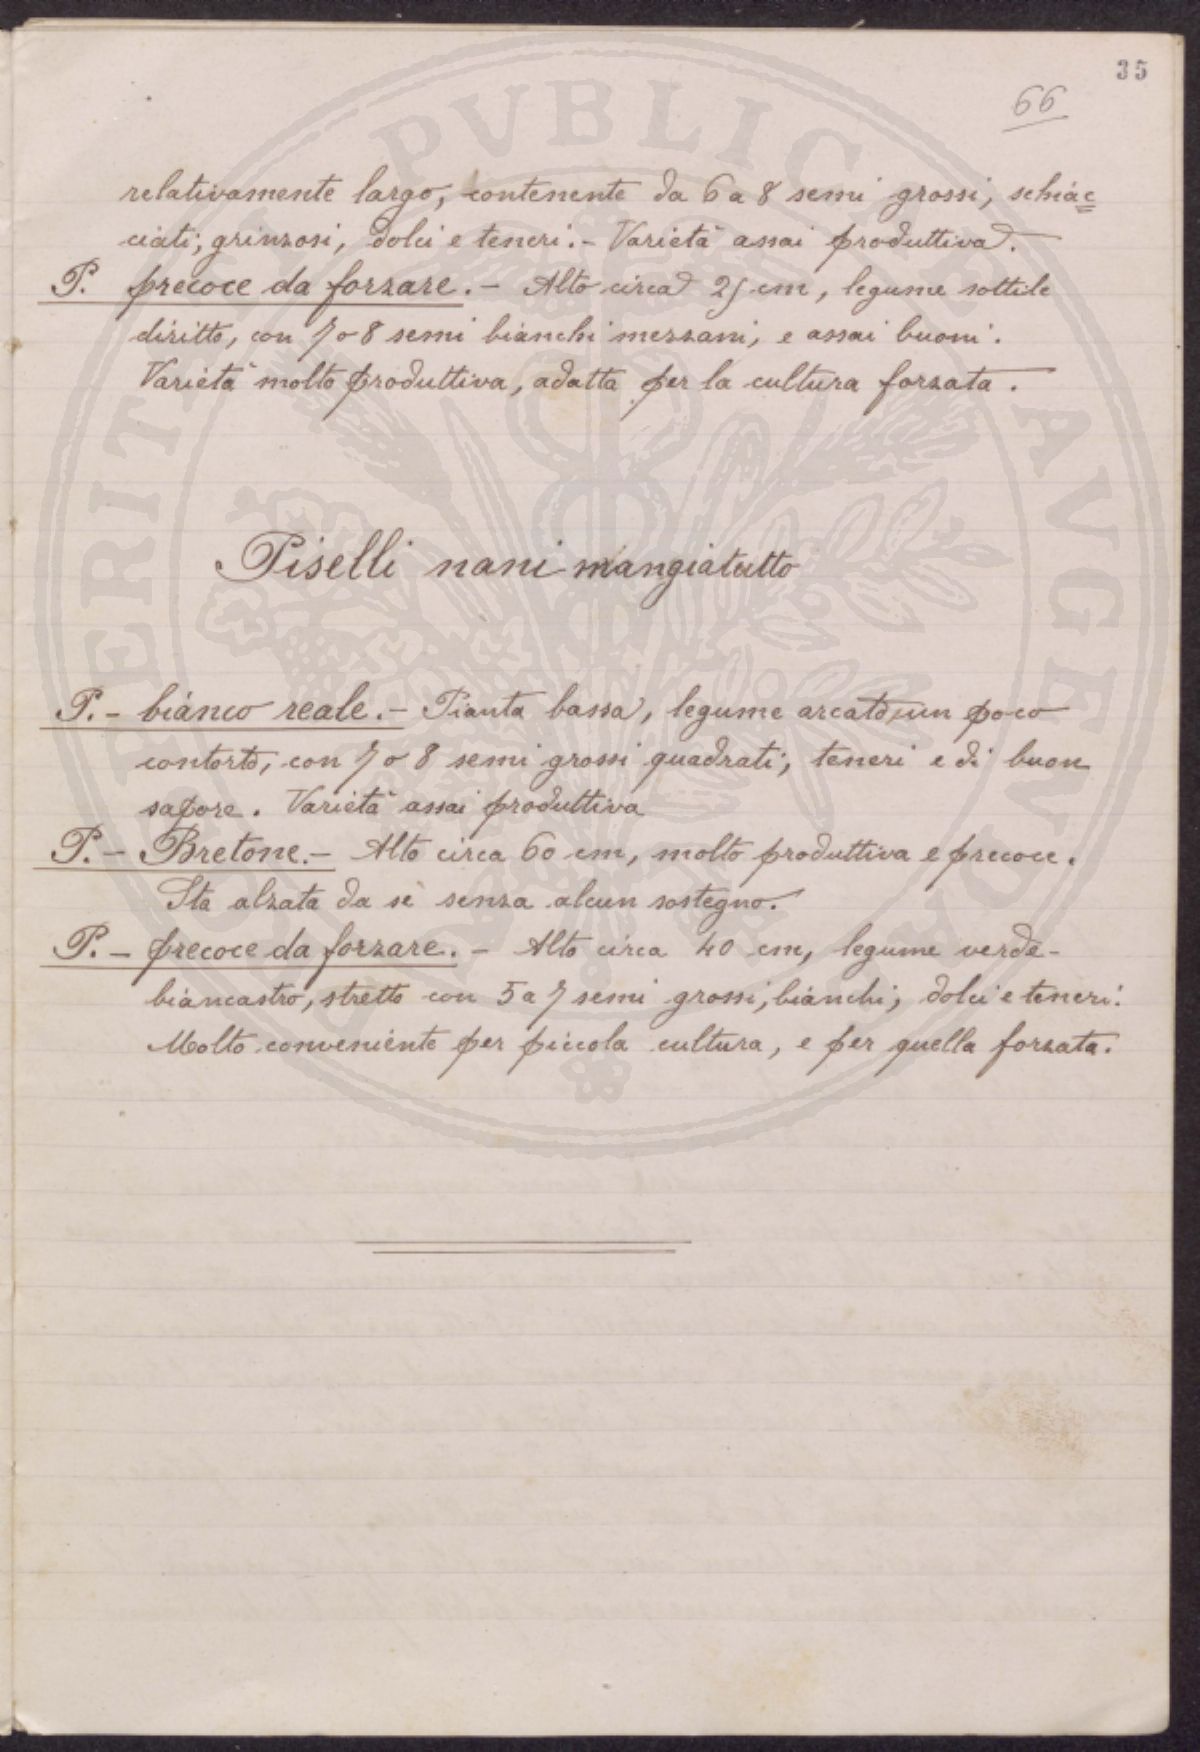 35
66
relativamente largo, contenente da 6 a 8 semi grossi, schiac=
ciati, grinzosi, dolci e teneri. - Varietà assai produttiva.
P. precoce da forzare. - Alto circa 25 cm, legume sottile
diritto, con 7 o 8 semi bianchi mezzani, e assai buoni.
Varietà molto produttiva, adatta per la cultura forzata.
Piselli nani mangiatutto
P. - bianco reale. - Pianta bassa, legume arcato, un poco
contorto, con 7 o 8 semi grossi quadrati, teneri e di buon
sapore. Varietà assai produttiva
P. - Bretone. - Alto circa 60 cm, molto produttiva e precoce.
Sta alzata da sè senza alcun sostegno.
P. - precoce da forzare. - Alto circa 40 cm, legume verde-
biancastro, stretto con 5 a 7 semi grossi, bianchi, dolci e teneri.
Molto conveniente per piccola cultura, e per quella forzata.